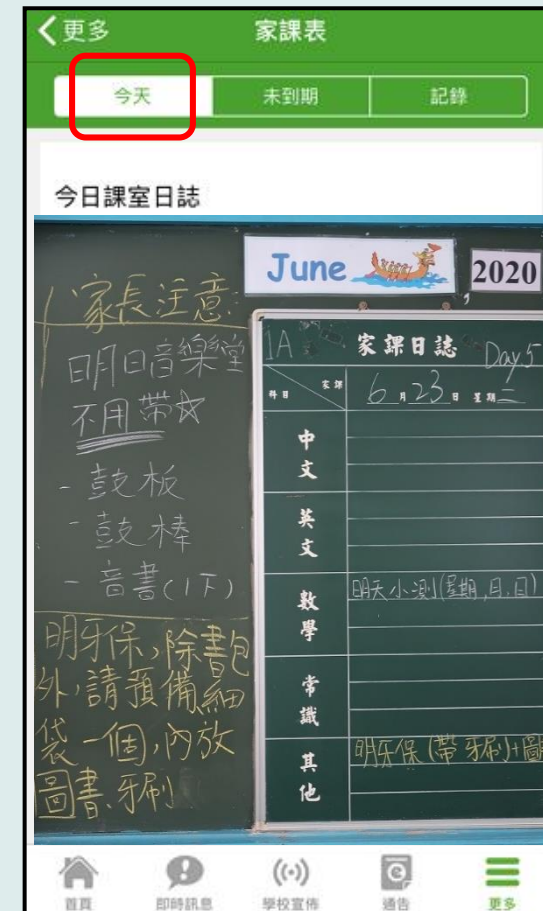 更多
家課表
今天
未到期
記錄
今日課室日誌
June
2020
家長注意:
明日音樂堂
不用帶
- 鼓板
- 鼓棒
- 音書(1下)
明牙保,除書包
外,請預備細
袋一個,內放
圖書、牙刷
1A
家課日誌
Day 5
科目
家課
6月23日 星期二
中文
英文
數學
明天小測(星期,月,日)
常識
其他
明牙保(帶牙刷)+圖
首頁
即時訊息
學校宣佈
通告
更多